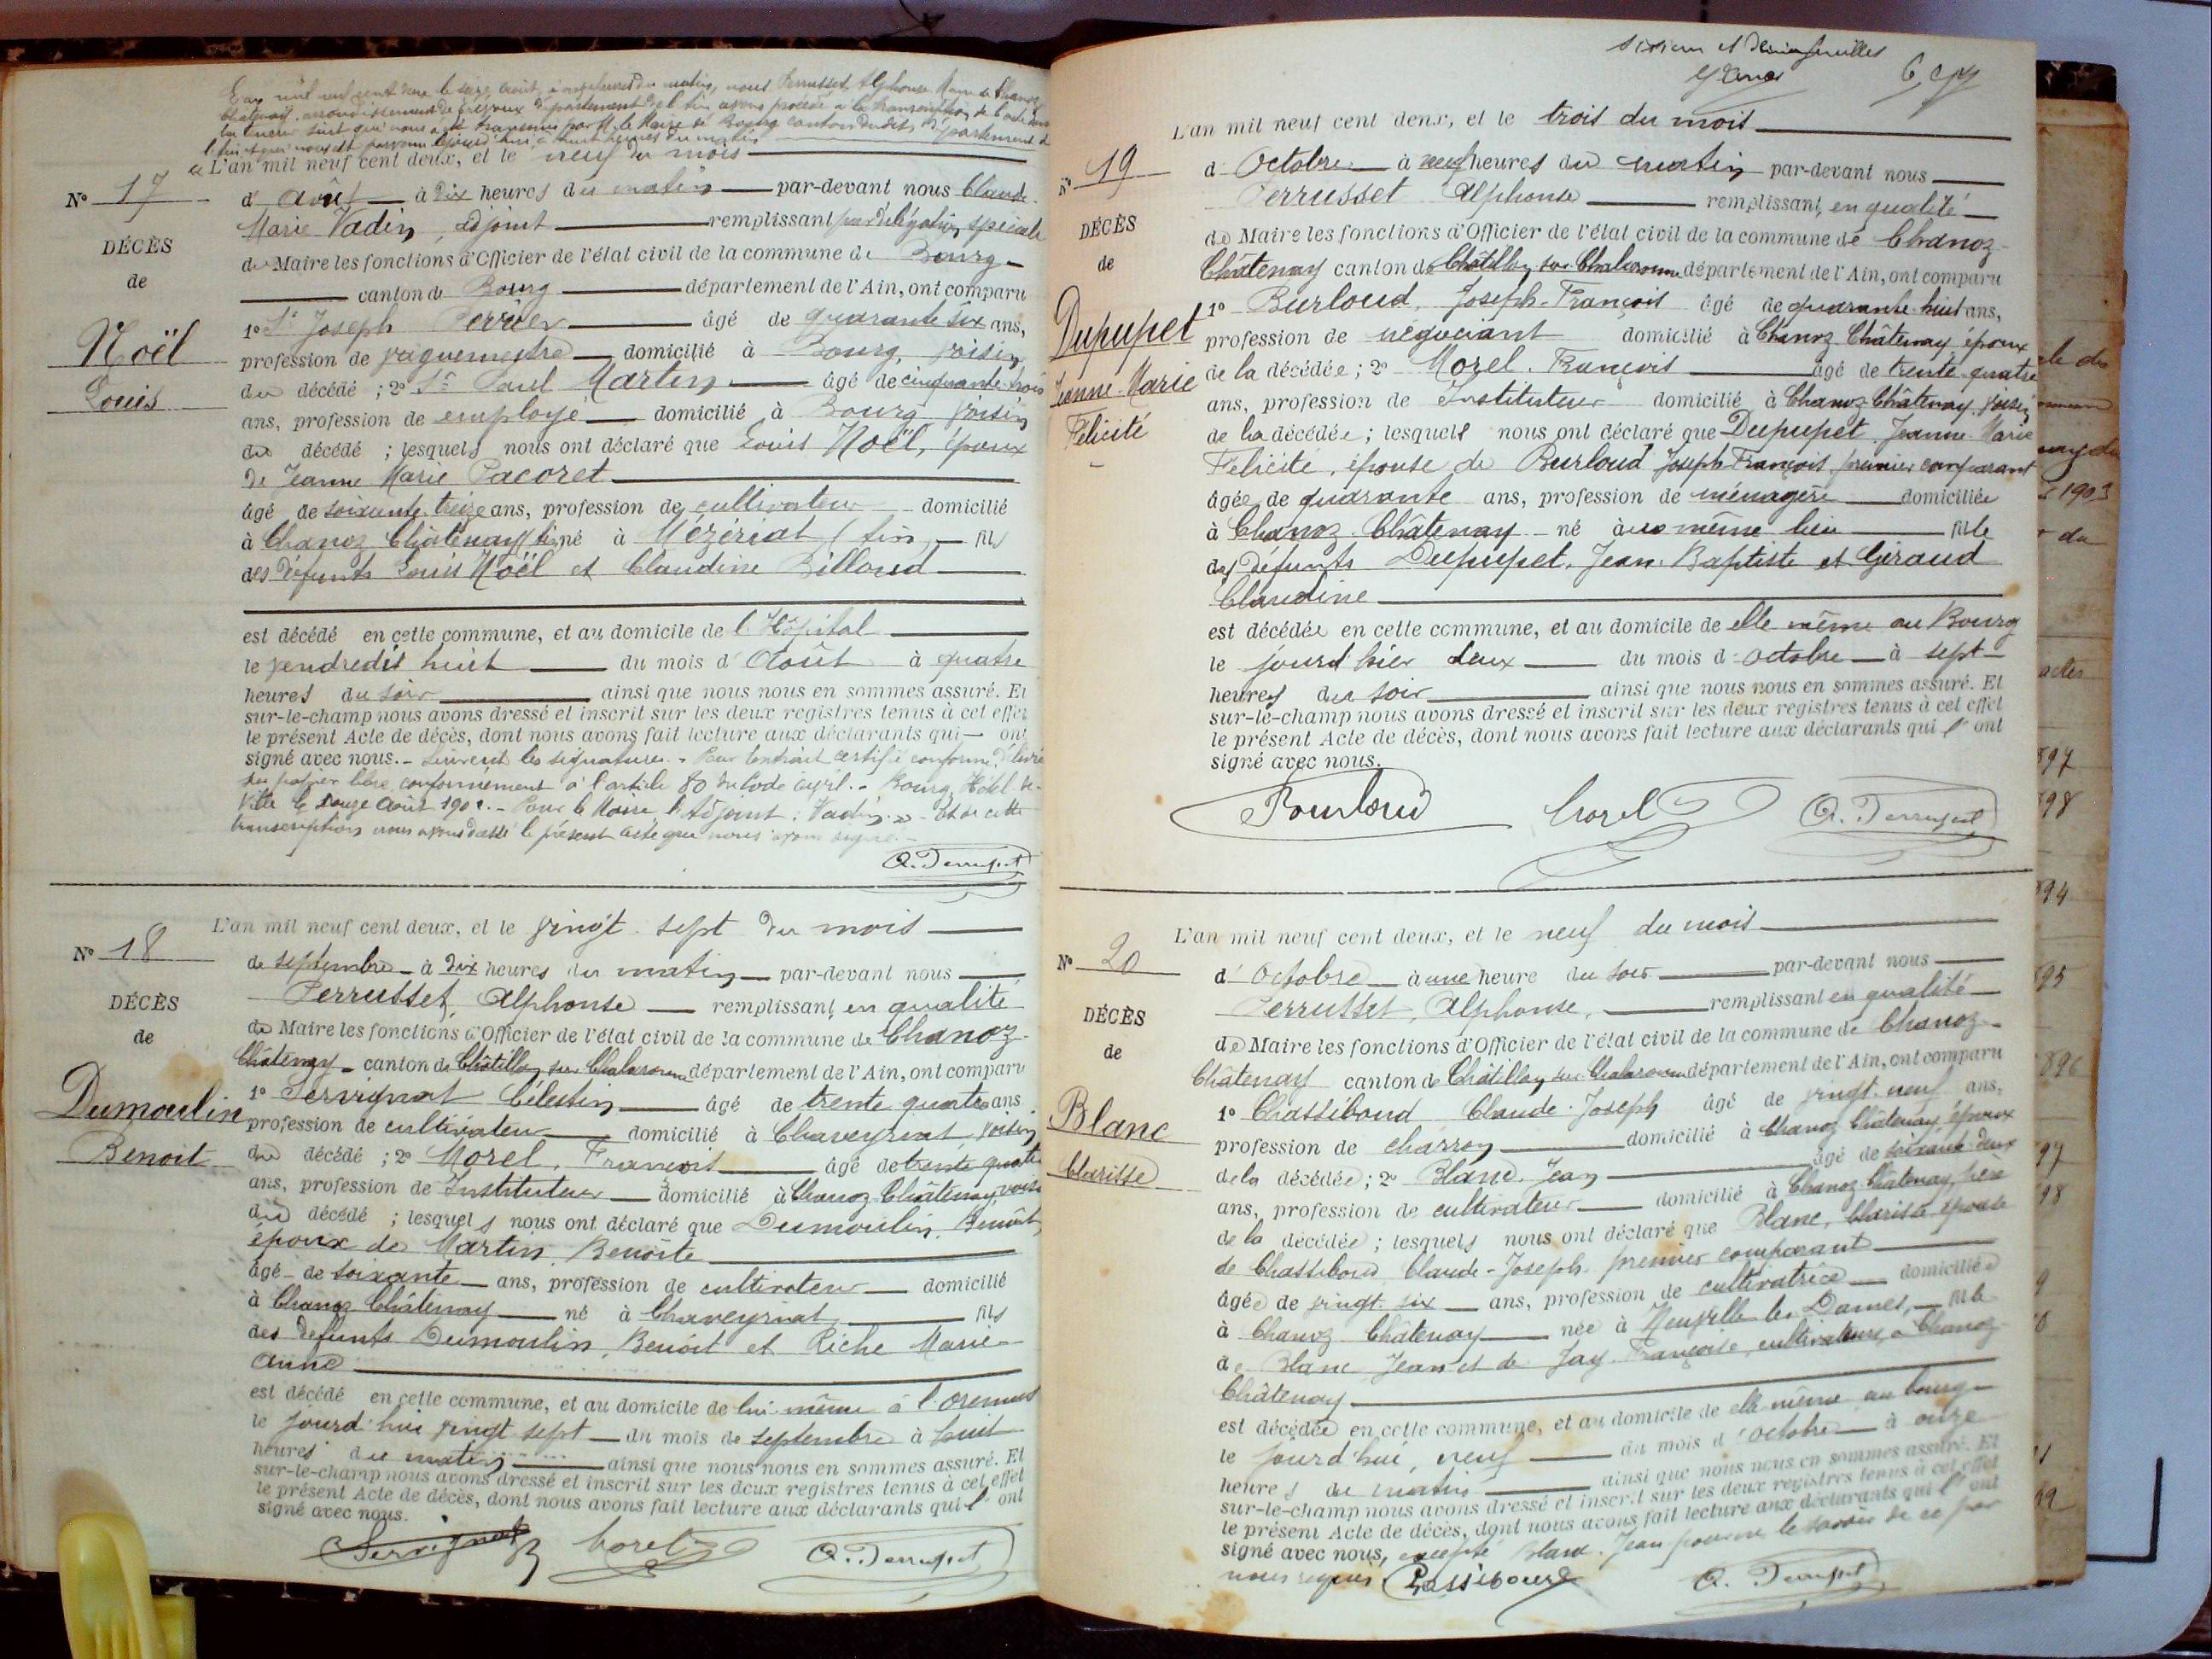 L'an mil neuf cent deux le seize Août, à neuf heures du matin, nous Perrusset Alphonse Maire de Chanoz
Châtenay, arrondissement de Trévoux département de l'Ain avons procédé à la transcription de l'acte dont
la teneur suit qui nous a été transmis par M. le Maire de Bourg canton dudit, département de
l'Ain et qui nous est parvenu à huit heures du matin
« L'an mil neuf cent deux, et le neuf du mois
N° 17
d'Août à dix heures du matin par-devant nous Claude
Marie Vadin, adjoint remplissant par délégation spéciale
DÉCÈS
du Maire les fonctions d'Officier de l'état civil de la commune de Bourg
de
canton de Bourg département de l'Ain, ont comparu
Noël
Louis
1° Sr Joseph Perrier âgé de quarante six ans,
profession de vaguemestre domicilié à Bourg, voisin
du décédé ; 2° Sr Paul Martin âgé de cinquante-trois
ans, profession de employé domicilié à Bourg voisin
du décédé ; lesquels nous ont déclaré que Louis Noël, époux
de Jeanne Marie Pacoret
âgé de soixante treize ans, profession de cultivateur domicilié
à Chanoz Châtenay né à Mézériat (Ain) fils
des défunts Louis Noël et Claudine Billoud
est décédé en cette commune, et au domicile de l'Hôpital
le vendredi huit du mois d'Août à quatre
heures du soir ainsi que nous nous en sommes assuré. Et
sur-le-champ nous avons dressé et inscrit sur les deux registres tenus à cet effet
le présent Acte de décès, dont nous avons fait lecture aux déclarants qui ont
signé avec nous. - Suivent les signatures. - Pour Extrait certifié conforme, délivré
sur papier libre conformément à l'article 80 du Code Civil. - Bourg, Hôtel de
Ville le douze Août 1902. - Pour le Maire, l'Adjoint : Vadin. » - Et de cette
transcription nous avons dressé le présent acte que nous avons signé.
A. Perrusset
L'an mil neuf cent deux, et le vingt sept du mois
N° 18
de septembre à dix heures du matin par-devant nous
Perrusset, Alphonse remplissant en qualité
DÉCÈS
de Maire les fonctions d'Officier de l'état civil de la commune de Chanoz
de
Châtenay canton de Châtillon sur Chalaronne département de l'Ain, ont comparu
Dumoulin
Benoit
1° Servignat Célestin âgé de trente quatre ans
profession de cultivateur domicilié à Chaveyriat voisin
du décédé ; 2° Morel, François âgé de trente quatre
ans, profession de Instituteur domicilié à Chanoz Châtenay, voisin
du décédé ; lesquels nous ont déclaré que Dumoulin, Benoît,
époux de Martin Benoîte
âgé de soixante ans, profession de cultivateur domicilié
à Chanoz Châtenay né à Chaveyriat fils
des défunts Dumoulin, Benoît et Riche Marie
Anne
est décédé en cette commune, et au domicile de lui même à l'Oremus
le jourd'hui vingt sept du mois de septembre à huit
heures du matin ainsi que nous nous en sommes assuré. Et
sur-le-champ nous avons dressé et inscrit sur les deux registres tenus à cet effet
le présent Acte de décès, dont nous avons fait lecture aux déclarants qui l'ont
signé avec nous.
Servignat Morel A. Perrusset
sixième et
L'an mil neuf cent deux, et le trois du mois
N° 19
d'Octobre à neuf heures du matin par-devant nous
Perrusset Alphonse remplissant en qualité
DÉCÈS
de Maire les fonctions d'Officier de l'état civil de la commune de Chanoz
de
Châtenay canton de Châtillon sur Chalaronne département de l'Ain, ont comparu
Dupupet
Jeanne-Marie
Félicité
1° Burloud, Joseph-François âgé de quarante huit ans,
profession de négociant domicilié à Chanoz Châtenay époux
de la décédée ; 2° Morel, François âgé de trente quatre
ans, profession de Instituteur domicilié à Chanoz-Châtenay, voisin
de la décédée ; lesquels nous ont déclaré que Dupupet, Jeanne-Marie
Félicité, épouse de Burloud Joseph François premier comparant
âgée de quarante ans, profession de ménagère domiciliée
à Chanoz Châtenay né au même lieu fille
des défunts Dupupet, Jean-Baptiste et Giraud
Claudine
est décédée en cette commune, et au domicile de elle même au Bourg
le jourd'hier deux du mois d'octobre à sept
heures du soir ainsi que nous nous en sommes assuré. Et
sur-le-champ nous avons dressé et inscrit sur les deux registres tenus à cet effet
le présent Acte de décès, dont nous avons fait lecture aux déclarants qui l'ont
signé avec nous.
Bourloud Morel A. Perrusset
L'an mil neuf cent deux, et le neuf du mois
N° 20
d'Octobre à une heure du soir par-devant nous
Perrusset, Alphonse, remplissant en qualité
DÉCÈS
de Maire les fonctions d'Officier de l'état civil de la commune de Chanoz
de
Châtenay canton de Châtillon sur Chalaronne département de l'Ain, ont comparu
Blanc
Clarisse
1° Chassiboud Claude-Joseph âgé de vingt-neuf ans,
profession de charron domicilié à Chanoz Châtenay époux
de la décédée ; 2° Blanc, Jean âgé de soixante deux
ans, profession de cultivateur domicilié à Chanoz Châtenay, père
de la décédée ; lesquels nous ont déclaré que Blanc, Clarisse épouse
de Chassiboud Claude-Joseph premier comparant
âgée de vingt-six ans, profession de cultivatrice domiciliée
à Chanoz Châtenay née à Neuville les Dames, fille
de Blanc Jean et de Jay Françoise, cultivateurs, à Chanoz
Châtenay
est décédée en cette commune, et au domicile de elle-même au bourg
le jourd'hui, neuf du mois d'octobre à onze
heures du matin ainsi que nous nous en sommes assuré. Et
sur-le-champ nous avons dressé et inscrit sur les deux registres tenus à cet effet
le présent Acte de décès, dont nous avons fait lecture aux déclarants qui l'ont
signé avec nous, excepté Blanc Jean pour ne le savoir de ce par
nous requis. Chassiboud A. Perrusset
1903
actes